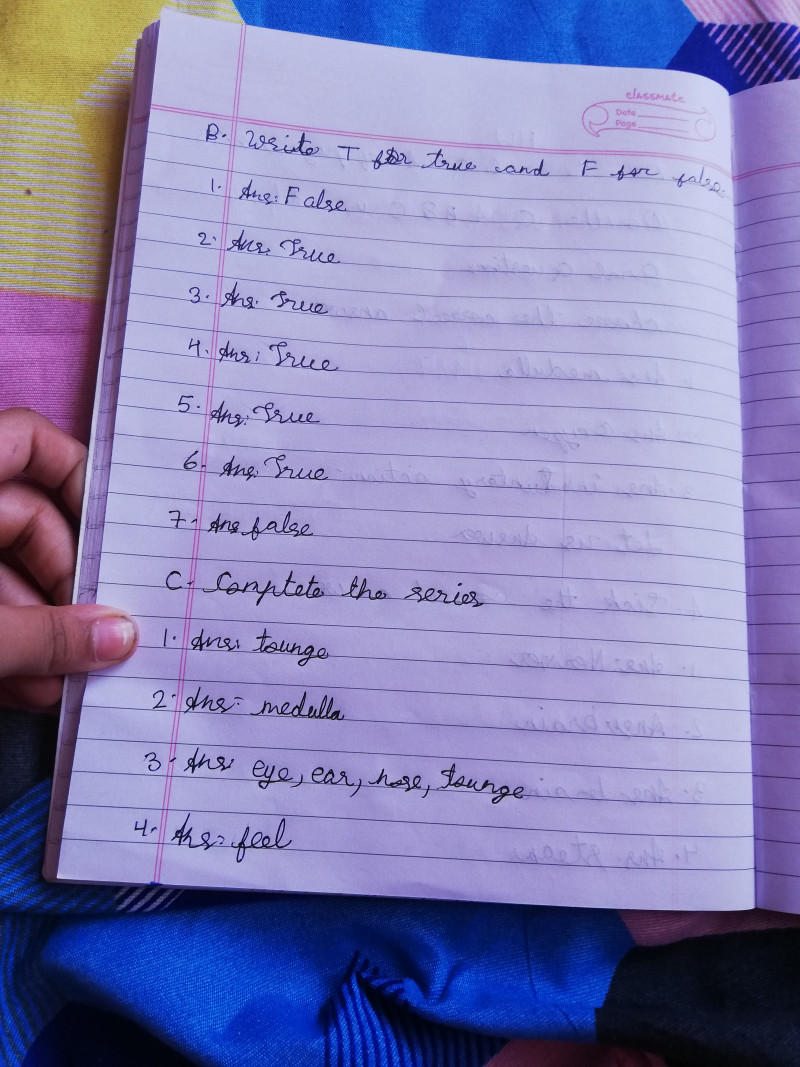 classmate
Date
Page
B. Write T for true and F for false.
1. Ans: False
2. Ans: True
3. Ans: True
4. Ans: True
5. Ans: True
6. Ans: True
7. Ans false
C. Complete the series
1. Ans: tounge
2. Ans: medulla
3. Ans: eye, ear, nose, tounge
4. Ans: feel